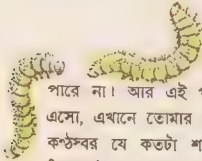 পারে না। আর এই
এসো, এখানে তোমার
কণ্ঠস্বর যে কতটা